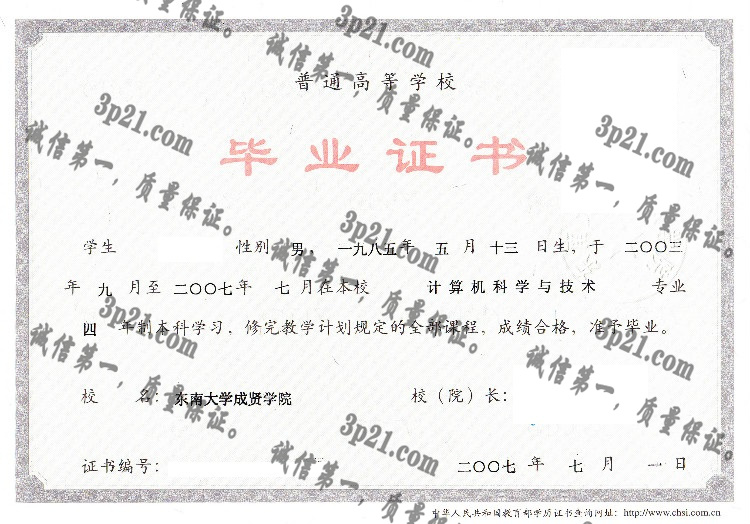 普通高等学校
毕业证书
学生 性别 男, 一九八五年 五 月 十三 日生, 于 二〇〇三
年 九 月至 二〇〇七年 七 月在本校 计算机科学与技术 专业
四 年制本科学习, 修完教学计划规定的全部课程, 成绩合格, 准予毕业。
校 名: 东南大学成贤学院 校（院）长:
证书编号: 二〇〇七 年 七 月 一 日
中华人民共和国教育部学历证书查询网址: http://www.chsi.com.cn
3p21.com
诚信第一，质量保证。
3p21.com
诚信第一，质量保证。
3p21.com
诚信第一，质量保证。
3p21.com
诚信第一，质量保证。
3p21.com
诚信第一，质量保证。
3p21.com
诚信第一，质量保证。
3p21.com
诚信第一，质量保证。
3p21.com
诚信第一，质量保证。